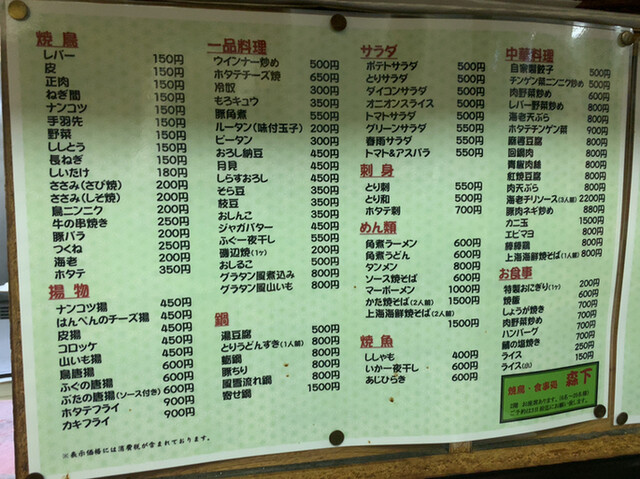 焼鳥
レバー 150円
皮 150円
正肉 150円
ねぎ間 150円
ナンコツ 150円
手羽先 150円
野菜 150円
ししとう 150円
長ねぎ 150円
しいたけ 180円
ささみ(さび焼) 200円
ささみ(しそ焼) 200円
鳥ニンニク 200円
牛の串焼き 250円
豚バラ 200円
つくね 250円
海老 200円
ホタテ 350円
揚物
ナンコツ揚 450円
はんぺんのチーズ揚 450円
皮揚 450円
コロッケ 450円
山いも揚 450円
鳥唐揚 600円
ふぐの唐揚 600円
ぶたの唐揚(ソース付き) 600円
ホタテフライ 900円
カキフライ 900円
※表示価格には消費税が含まれております。
一品料理
ウインナー炒め 500円
ホタテチーズ焼 650円
冷奴 300円
もろキュウ 350円
豚角煮 500円
ルータン(味付玉子) 200円
ピータン 300円
おろし納豆 450円
月見 450円
しらすおろし 450円
そら豆 350円
枝豆 350円
おしんこ 350円
ジャガバター 450円
ふぐ一夜干し 550円
磯辺焼(1ヶ) 200円
おしるこ 500円
グラタン風煮込み 800円
グラタン風山いも 800円
鍋
湯豆腐 500円
とりうどんすき(1人前) 800円
鍋 800円
豚ちり 800円
風雪流れ鍋 800円
寄せ鍋 1500円
サラダ
ポテトサラダ 500円
とりサラダ 500円
ダイコンサラダ 500円
オニオンスライス 500円
トマトサラダ 500円
グリーンサラダ 500円
春雨サラダ 550円
トマト&アスパラ 550円
刺身
とり刺 550円
とり和 550円
ホタテ刺 700円
めん類
角煮ラーメン 600円
角煮うどん 600円
タンメン 800円
ソース焼そば 600円
マーボーメン 1000円
かた焼そば(2人前) 1500円
上海海鮮焼そば(2人前)
1500円
焼魚
ししゃも 400円
いか一夜干し 600円
あじひらき 600円
中華料理
自家製餃子 500円
チンゲン菜ニンニク炒め 500円
肉野菜炒め 600円
レバー野菜炒め 800円
海老天ぷら 800円
ホタテチンゲン菜 900円
麻婆豆腐 800円
回鍋肉 800円
青椒肉絲 800円
紅焼豆腐 800円
肉天ぷら 800円
海老チリソース(3人前) 2200円
豚肉ネギ炒め 880円
カニ玉 1500円
エビマヨ 800円
棒棒鶏 800円
上海海鮮焼そば(1人前) 800円
お食事
特製おにぎり(1ヶ) 200円
焼飯 700円
しょうが焼き
肉野菜炒め
ハンバーグ
鯖の塩焼き
ライス 250円
ライス(小) 150円
焼鳥・食事処 森下